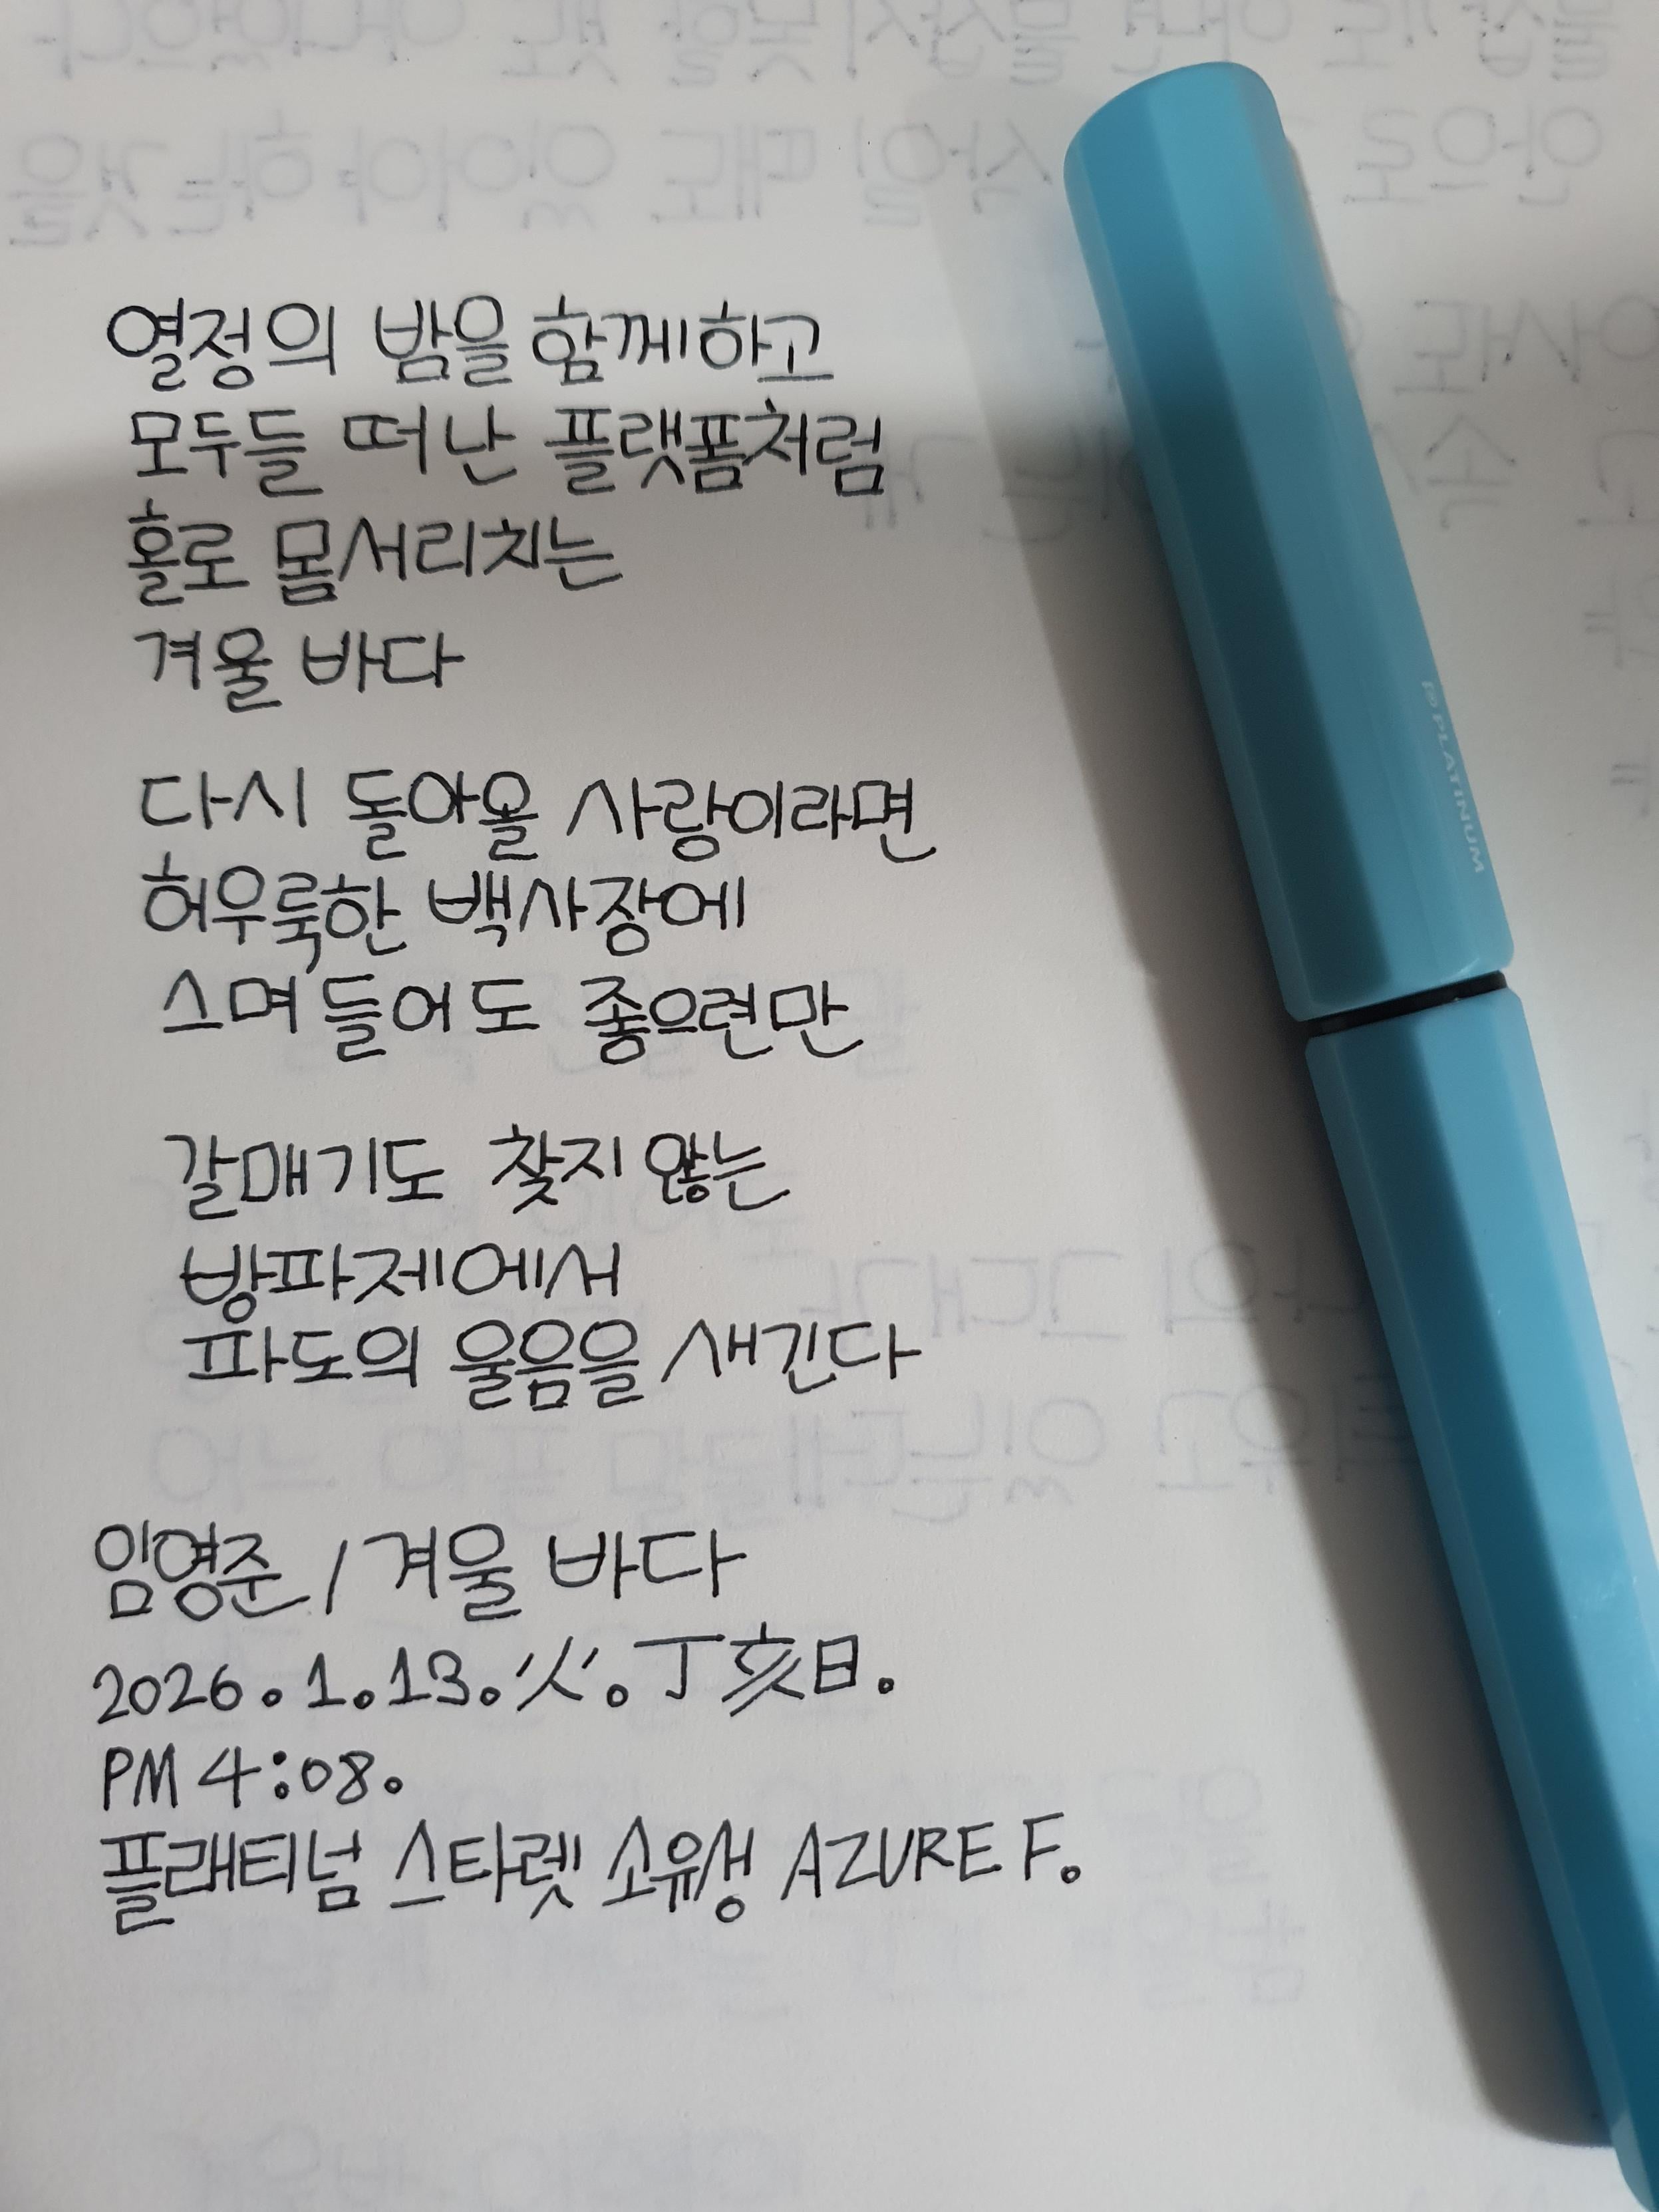 열정의 밤을 함께하고
모두들 떠난 플랫폼처럼
홀로 몸서리치는
겨울 바다
다시 돌아올 사랑이라면
허우룩한 백사장에
스며들어도 좋으련만
갈매기도 찾지 않는
방파제에서
파도의 울음을 새긴다
임영준 / 겨울 바다
2026. 1. 13. 火. 丁亥日.
PM 4:08.
플래티넘 스타렛 소유생 AZURE F.
PLATINUM